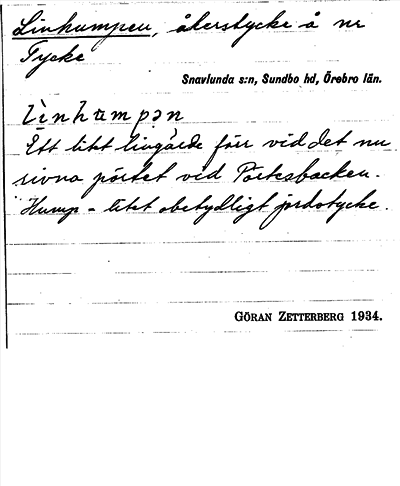 Linhumpen, åkerstycke å nr
Tycke
Snavlunda s:n, Sundbo hd, Örebro län.
lìnhumpən
Ett litet lingärde förr vid det nu
rivna pörtet vid Pörtesbacken.
Hump - litet obetydligt jordstycke.
GÖRAN ZETTERBERG 1934.